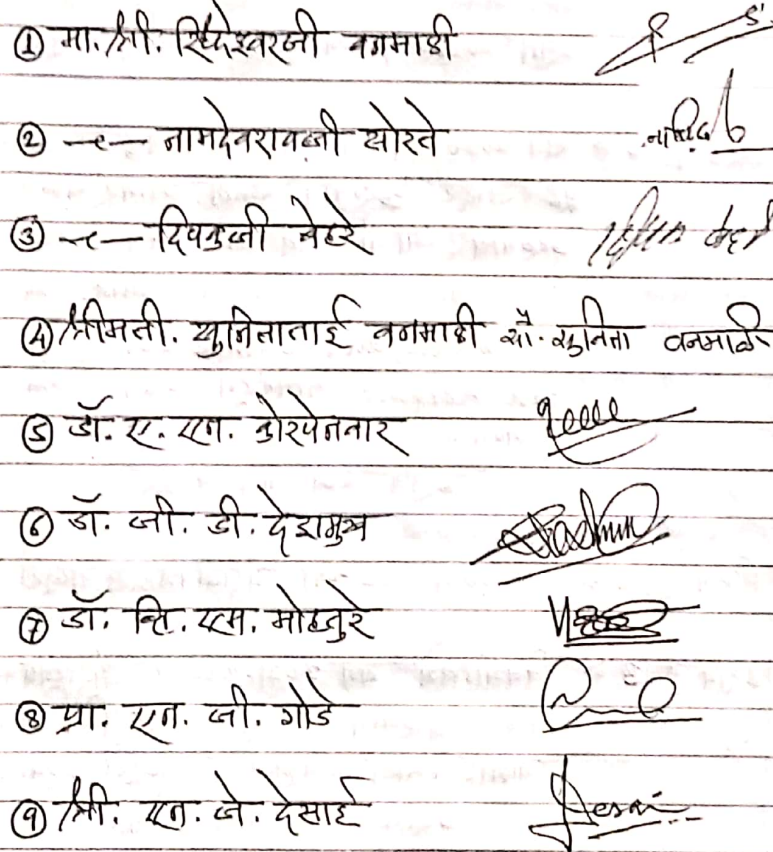 ① मा. श्री. सिध्देश्वरजी वनमाळी
② —〃— नामदेवरावजी सोरते
③ —〃— दिपकजी बेहरे
④ श्रीमती. सुनिताताई वनमाळी सौ. सुनिता वनमाळी
⑤ डॉ. ए. एन. कोरपेनवार
⑥ डॉ. जी. डी. देशमुख
⑦ डॉ. व्हि. एम. मोहतुरे
⑧ प्रा. एन. जी. गोडे
⑨ श्री. एन. जे. देसाई